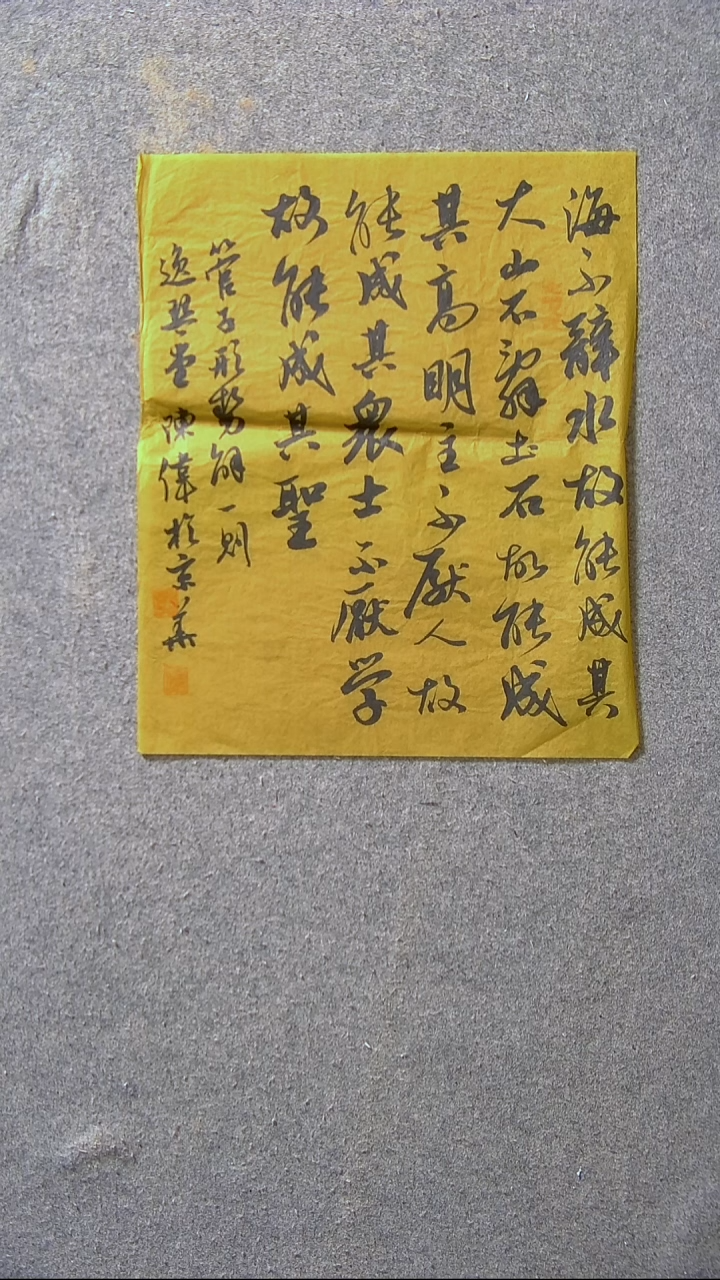 海不辭水故能成其
大山不辭土石故能成
其高明主不厭人故
能成其眾士不厭学
故能成其聖
管子形勢解一則
逸興堂陳偉於京華